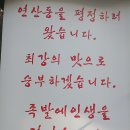 연산동을 평정하러
왔습니다.
최강의 맛으로
승부하겠습니다.
족발에 인생을